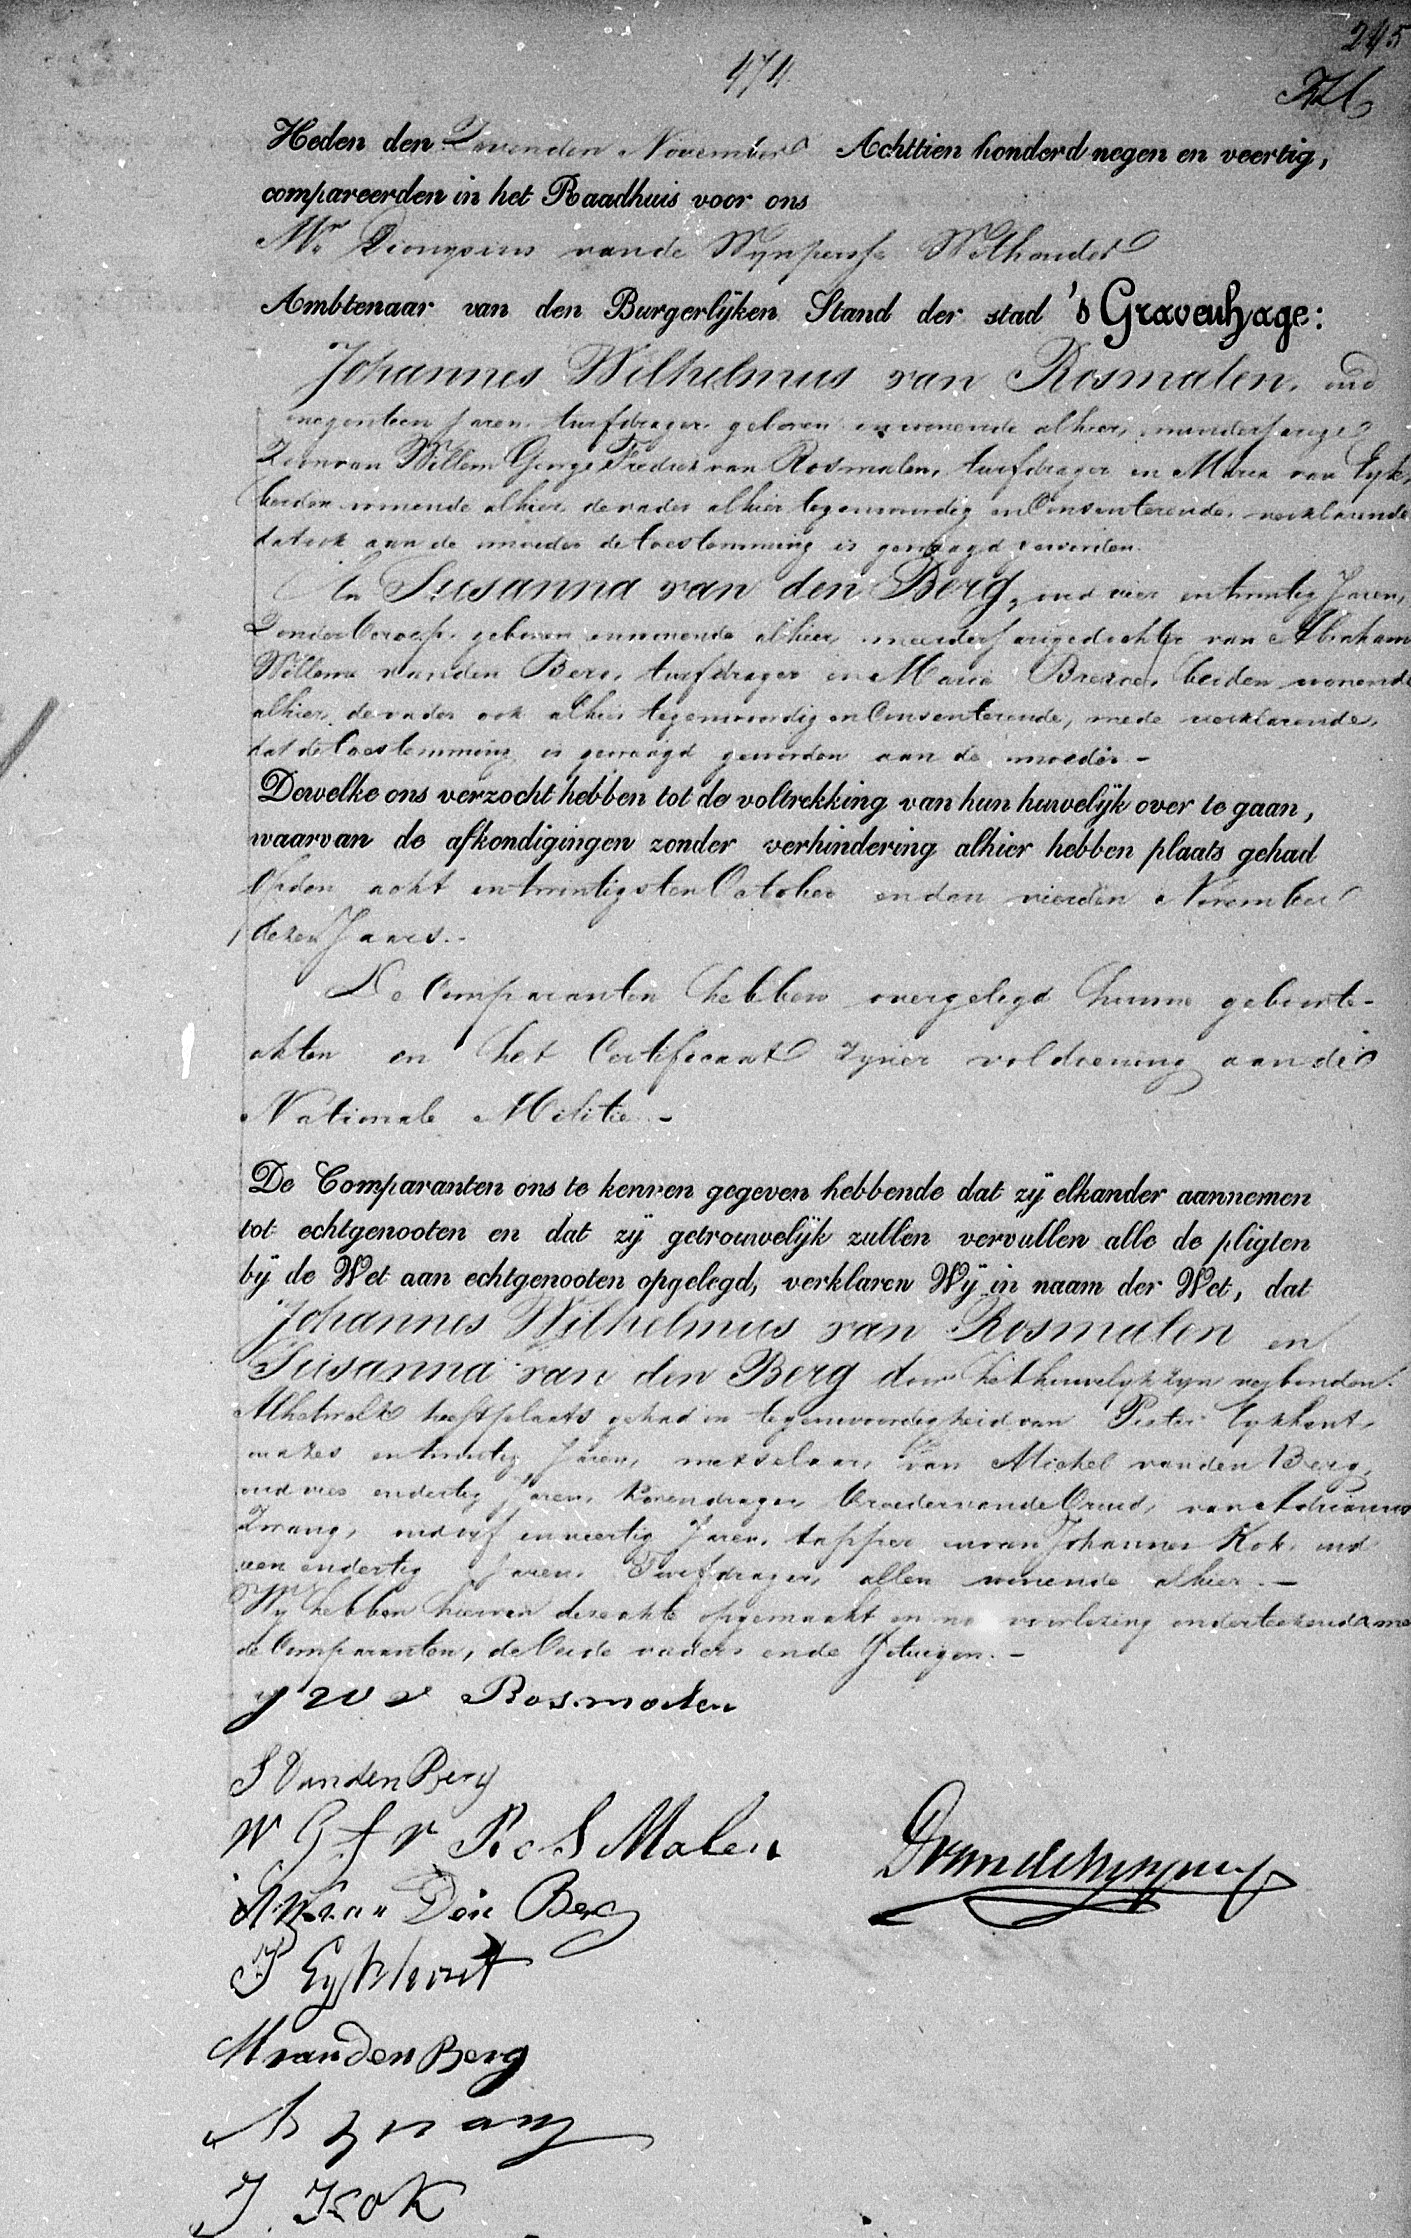 245
474
Heden den Zevenden November Achttien honderd negen en veertig,
compareerden in het Raadhuis voor ons
Mr Dionysius vande Wynpersse Wethouder
Ambtenaar van den Burgerlijken Stand der stad 's Gravenhage:
Johannes Wilhelmus van Rosmalen, oud
negentien Jaren, turfdrager, geboren en wonende alhier, minderjarige
Zoon van Willem George Fredrik van Rosmalen, turfdrager en Maria van Eyk,
beiden wonende alhier, de vader alhier tegenwoordig en Consenterende, verklarende
dat ook aan de moeder de toestemming is gevraagd geworden.
En Susanna van den Berg, oud vier en twintig Jaren,
Zonder beroep, geboren en wonende alhier, meerderjarige dochter van Abraham
Willem van den Berg, turfdrager en Maria beiden wonende
alhier, de vader ook alhier tegenwoordig en Consenterende, mede verklarende,
dat de toestemming is gevraagd geworden aan de moeder.-
Dewelke ons verzocht hebben tot de voltrekking van hun huwelijk over te gaan,
waarvan de afkondigingen zonder verhindering alhier hebben plaats gehad
op den acht en twintigsten October en den vierden November
dezes Jaars.-
De Comparanten hebben overgelegd hunne geboorte-
akten en het Certificaat zyner voldoening aan de
Nationale Militie.-
De Comparanten ons te kennen gegeven hebbende dat zij elkander aannemen
tot echtgenooten en dat zij getrouwelijk zullen vervullen alle de pligten
bij de Wet aan echtgenooten opgelegd, verklaren Wij in naam der Wet, dat
Johannes Wilhelmus van Rosmalen en
Susanna van den Berg door het huwelyk zyn verbonden.
Alhetwelk heeft plaats gehad in tegenwoordigheid van Pieter Eykhout,
oud zes en twintig Jaren, metselaar, van Michel van den Berg,
oud vier en dertig Jaren, Korendrager, broeder van de bruid, van Adrianus
Zwang, oud vyf en veertig Jaren, tapper en van Johannes Kok, oud
een en dertig Jaren, Turfdrager, allen wonende alhier.-
Wy hebben hiervan deze akte opgemaakt en na voorlezing onderteekend met
de Comparanten, de beide vaders en de Getuigen.-
J W v Rosmalen
S Van den Berg
W G F v RoSMalen
A W van Den Berg
DvandeWynpersse
P Eykhout
M van Den Berg
A Zwang
J. Kok